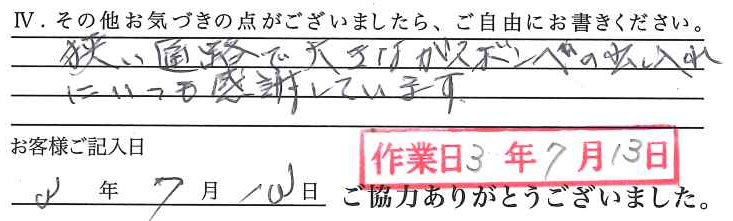 Ⅳ．その他お気づきの点がございましたら、ご自由にお書きください。
狭い通路で大きなガスボンベの出し入れ
にいつも感謝しています。
お客様ご記入日
作業日3年7月13日
年7月 日 ご協力ありがとうございました。